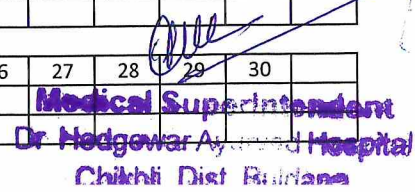 6 27 28 29 30
Medical Superintendent
Dr Hedgewar Ayurved Hospital
Chikhli Dist Buldana